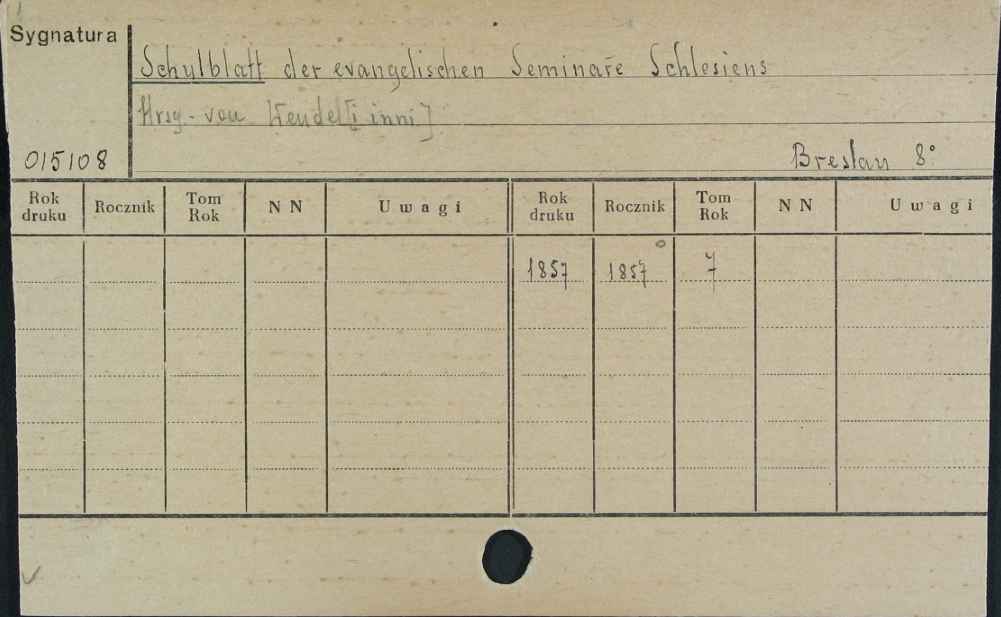 Sygnatura
Schulblatt der evangelischen Seminare Schlesiens
Hrsg. von Wendel [i inni]
015108
Breslau 8°
Rok druku Rocznik Tom Rok N N Uwagi Rok druku Rocznik Tom Rok N N Uwagi
1857 1857 7